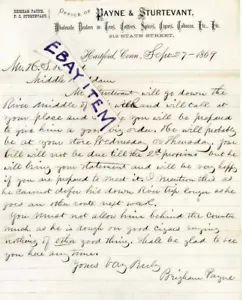 BRIGHAM PAYNE,
P. D. STURTEVANT.
OFFICE OF
PAYNE & STURTEVANT,
Wholesale Dealers in Teas, Coffees, Spices, Cigars, Tobacco, Etc., Etc.
STATE STREET,
Hartford, Conn, Sept 27 - 1869
Mr.
Middle
Mr. Sturtevant will go down the
River middle of and will call at
your place and you will be prepared
to give him a good big order. He will probably
be at your store Wednesday or Thursday, your
bill will not be due till the 2nd proximo, but he
will bring your statement and will be very happy
if you are prepared to meet it. I mention this as
he cannot defer his down River trip longer as he
goes on other route next week.
You must not allow him behind the Counter
much as he is rough on good cigars saying
nothing of other good things. Shall be glad to see
you here any time.
Yours Very Truly
Brigham Payne
EBAY ITEM